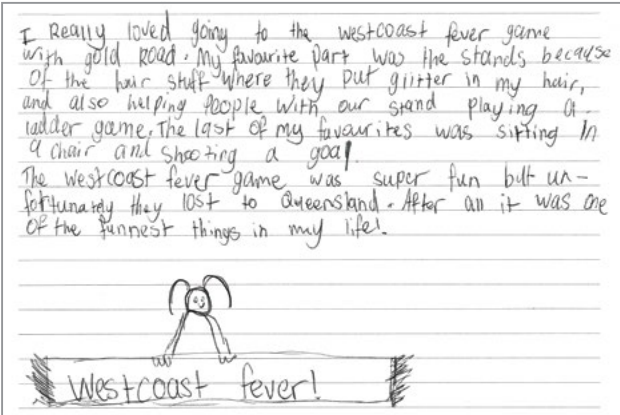 I Really loved going to the westcoast fever game
with gold Road. My favourite part was the stands because
of the hair stuff where they put glitter in my hair,
and also helping people with our stand playing a
ladder game. The last of my favourites was sitting In
a chair and shooting a goal.
The westcoast fever game was super fun but un-
fortunately they lost to Queensland. After all it was one
of the funnest things in my life!
Westcoast fever!